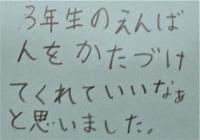 3年生のえんば
人をかたづけ
てくれていいなぁ
と思いました。